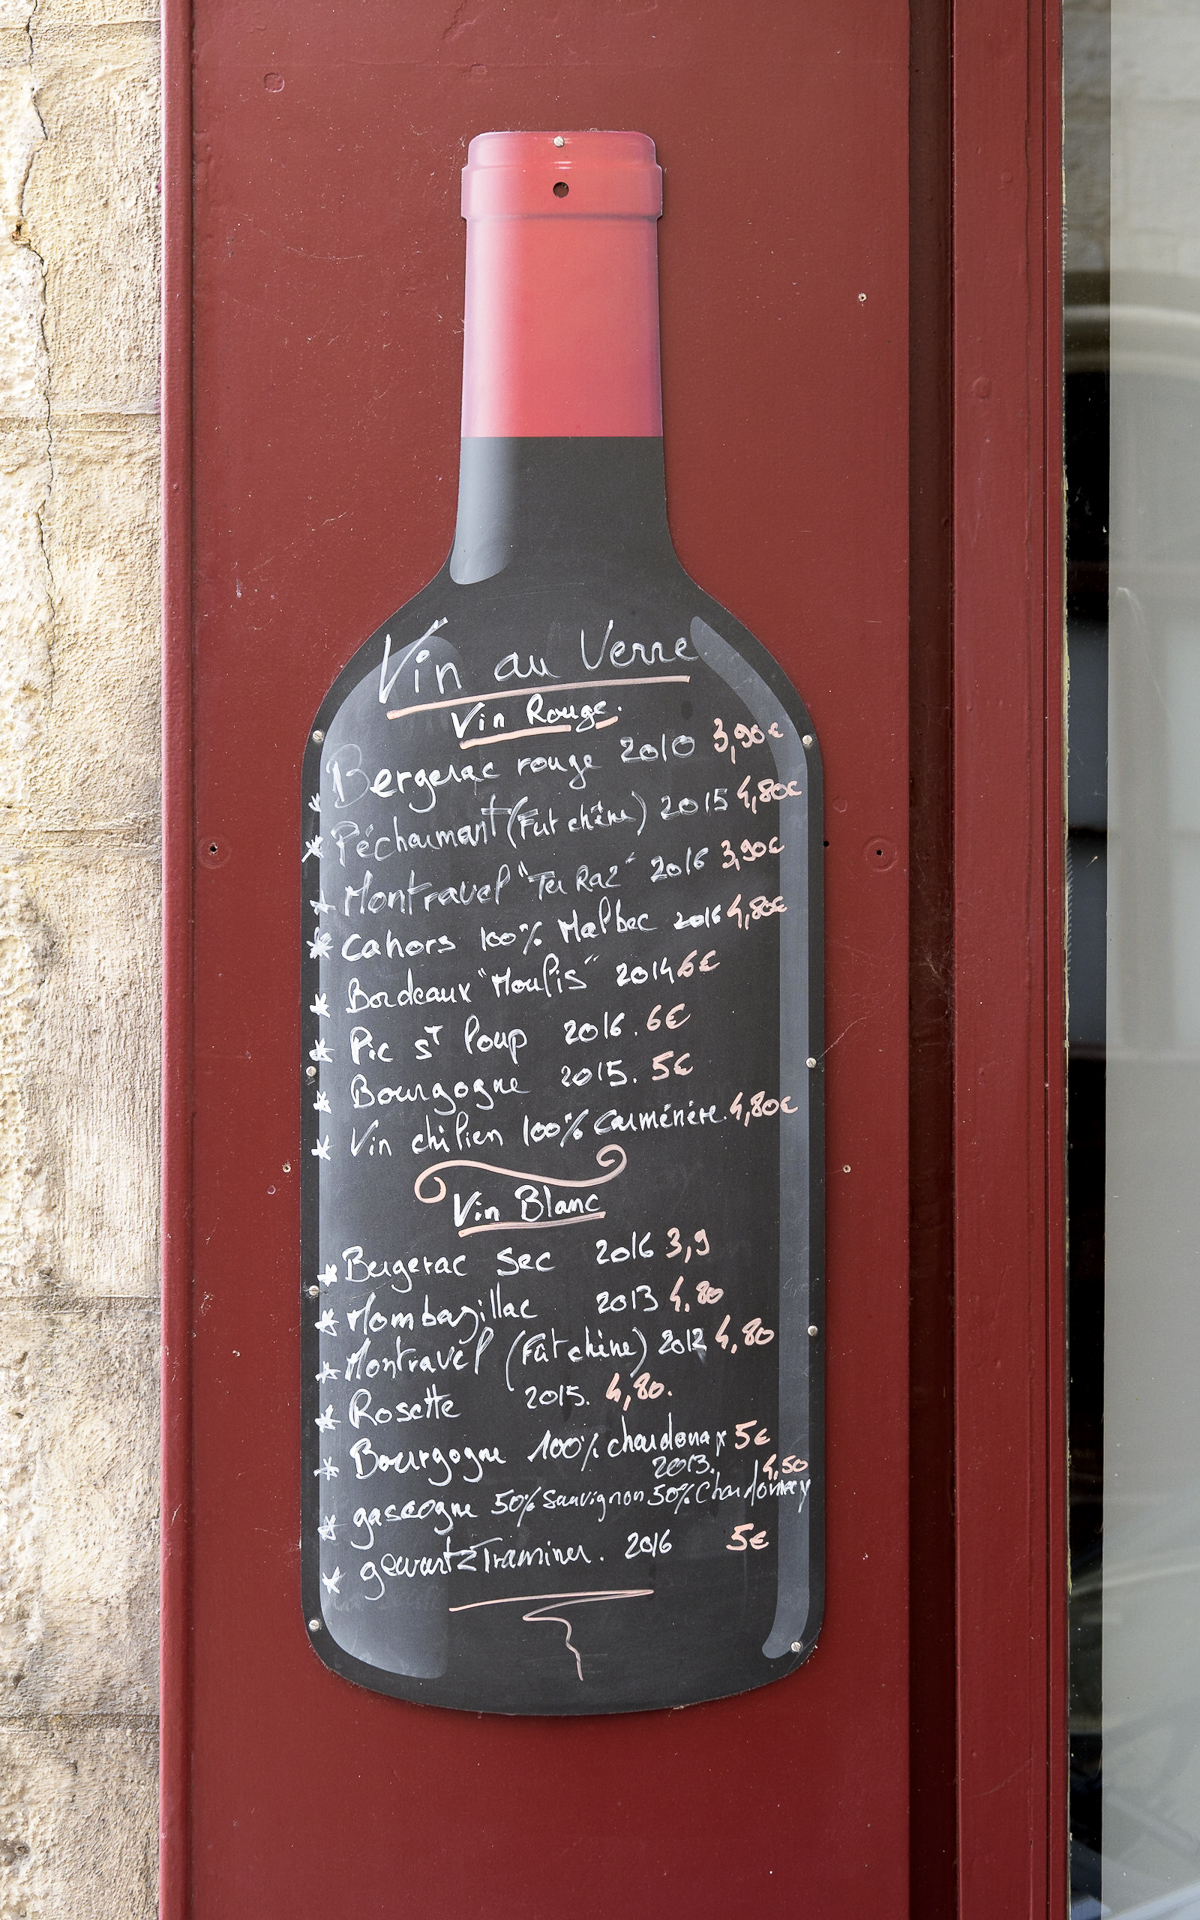 Vin au Verre
Vin Rouge.
* Bergerac rouge 2010 3,90€
* Pécharmant (Fût chêne) 2015 4,80€
* Montravel "Ter Raz" 2016 3,90€
* Cahors 100% Malbec 2016 4,80€
* Bordeaux "Moulis" 2014 6€
* Pic sT Loup 2016. 6€
* Bourgogne 2015. 5€
* Vin chilien 100% Carménère. 4,80€
Vin Blanc
* Bergerac Sec 2016 3,9
* Mombazillac 2013 4,80
* Montravel (Fût chêne) 2012 4,80
* Rosette 2015. 4,80.
* Bourgogne 100% chardonay 5€
2013. 4,50
* gascogne 50% Sauvignon 50% Chardonnay
* gewurtzTraminer. 2016 5€